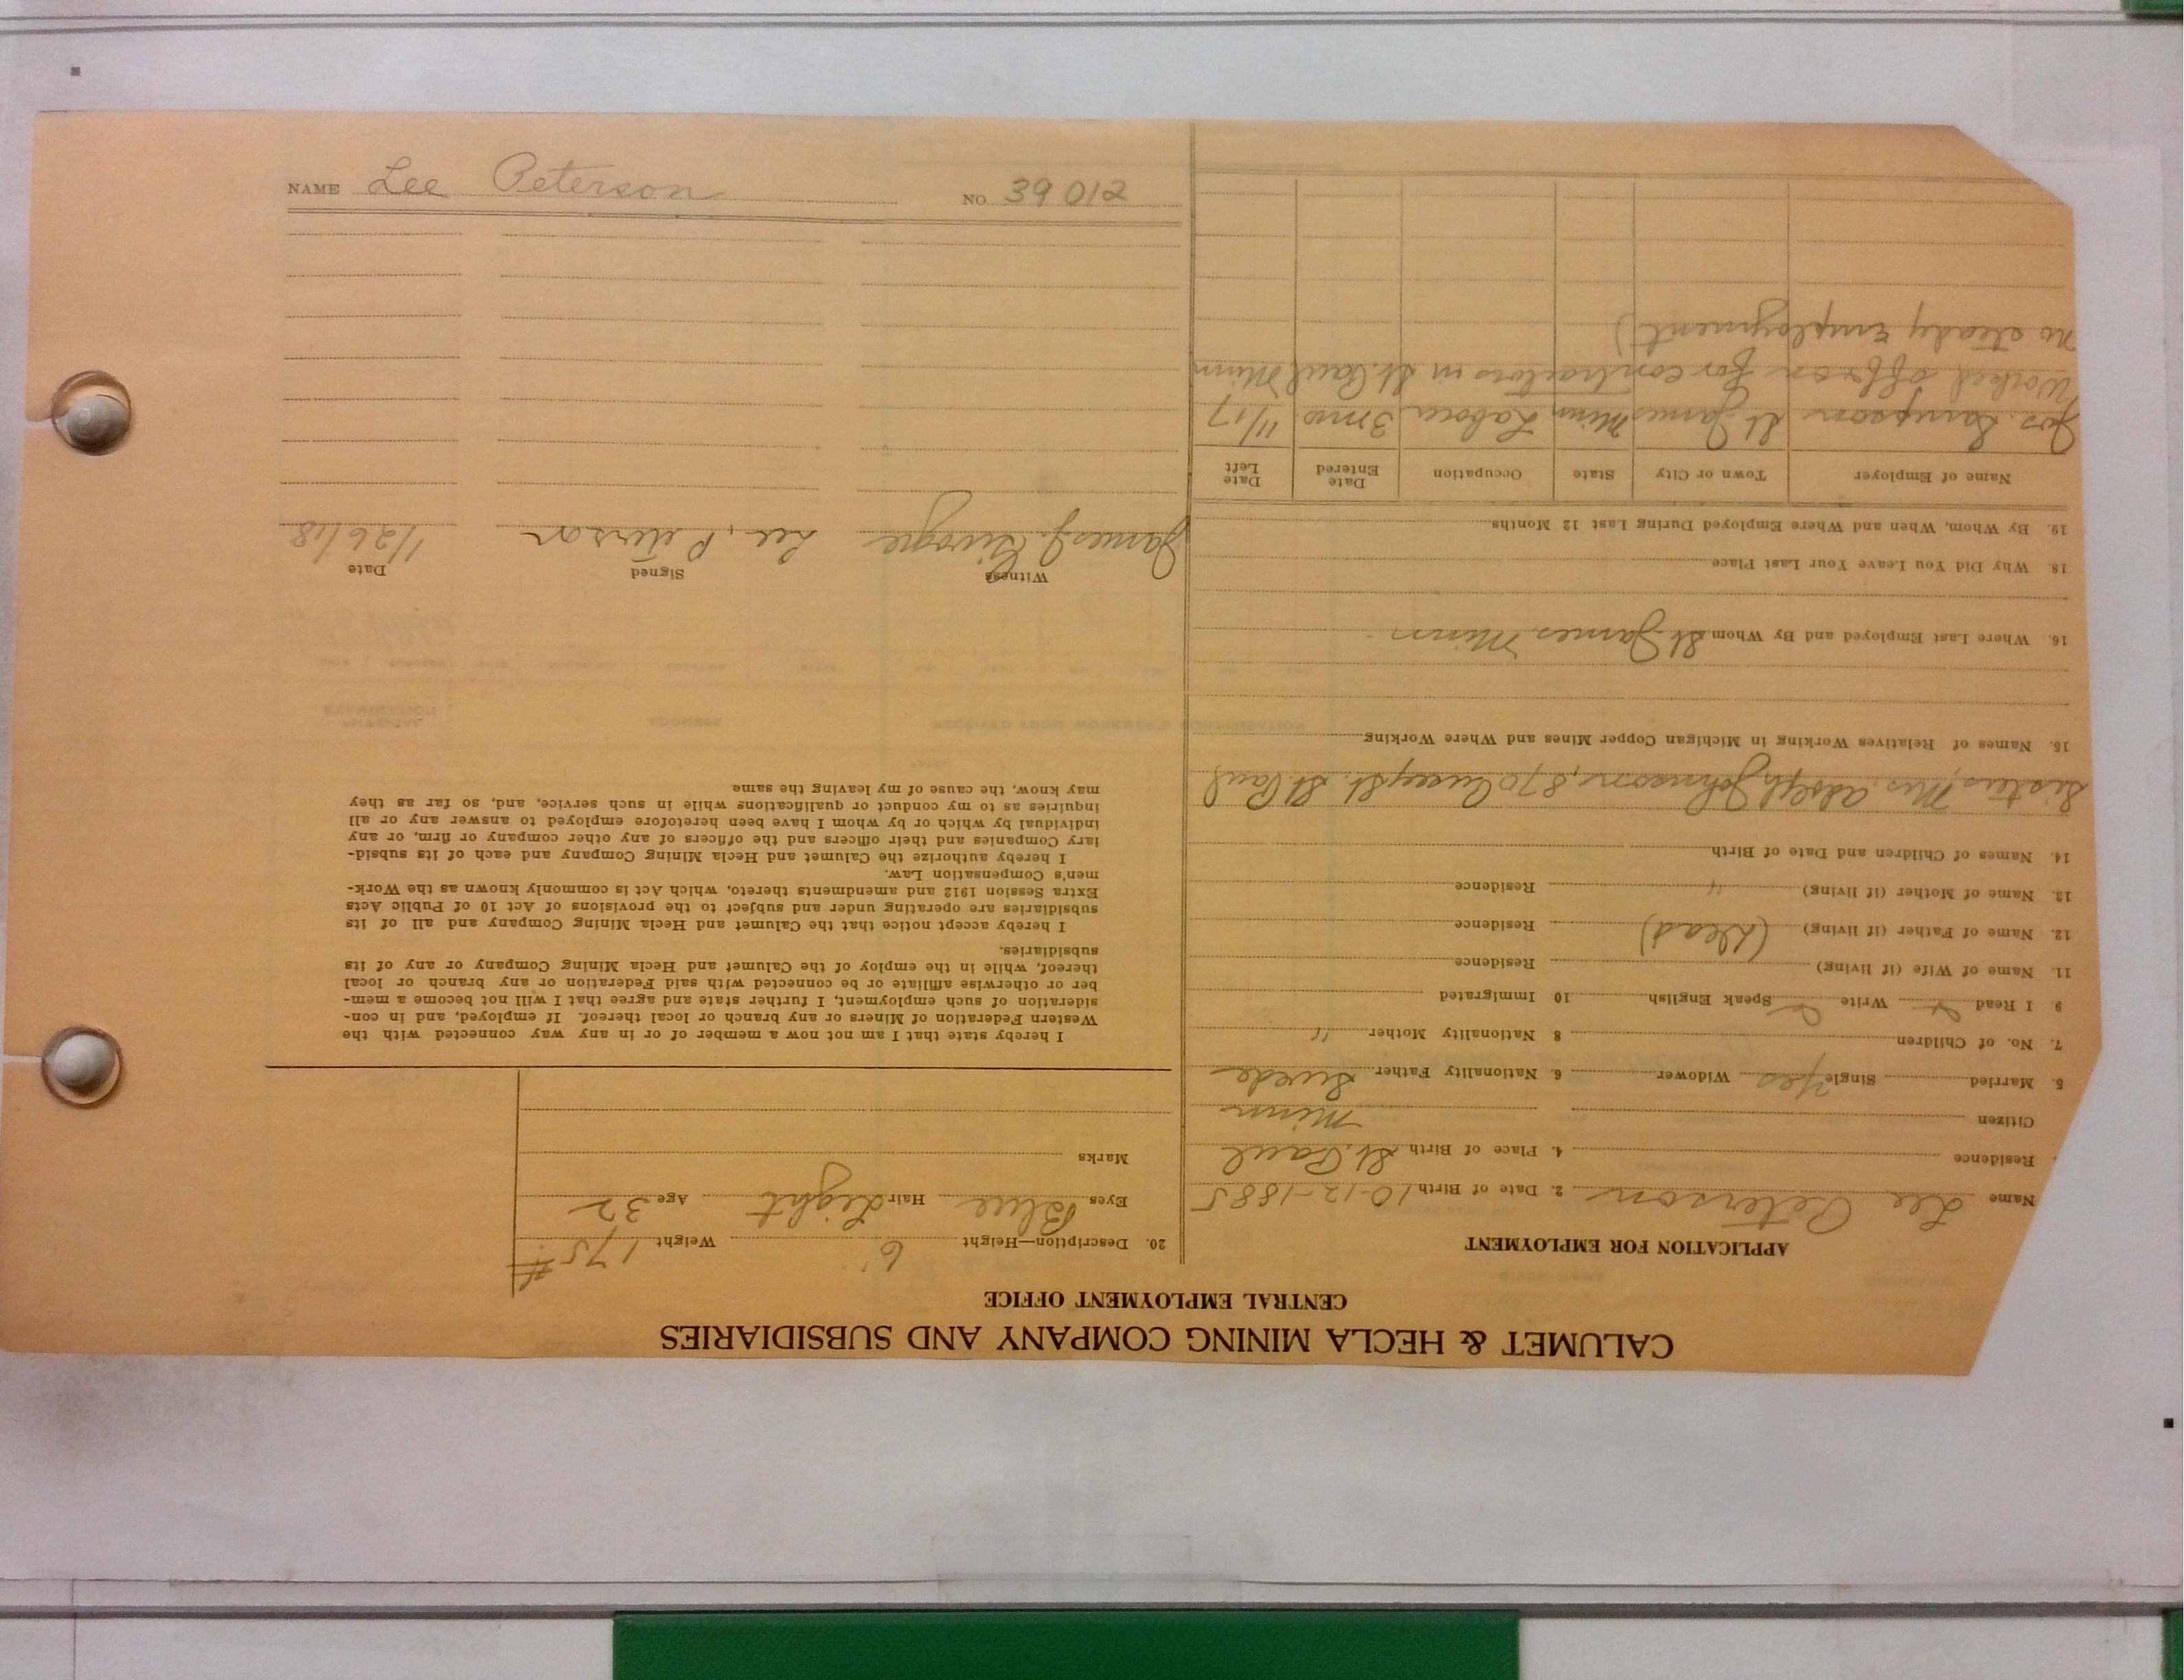 CALUMET & HECLA MINING COMPANY AND SUBSIDIARIES
CENTRAL EMPLOYMENT OFFICE
APPLICATION FOR EMPLOYMENT
Name Lee Peterson 2. Date of Birth 10-12-1885
Residence 4. Place of Birth St. Paul
Citizen Minn
5. Married Single Yes Widower 6. Nationality Father Swede
7. No. of Children 8 Nationality Mother "
9 I Read Write Speak English 10 Immigrated
11. Name of Wife (if living) Residence
12. Name of Father (if living) (Dead) Residence
13. Name of Mother (if living) " Residence
14. Names of Children and Date of Birth
Sister, Mrs. Adolph Johnson, 870 St. St. Paul
15. Names of Relatives Working in Michigan Copper Mines and Where Working
16. Where Last Employed and By Whom St James Minn
18. Why Did You Leave Your Last Place
19. By Whom, When and Where Employed During Last 12 Months
Name of Employer Town or City State Occupation Date Entered Date Left
Jos. Sampson St James Minn Labour 3 mo 11/17
Worked off & on for contractors in St. Paul Minn
no steady employment)
20. Description—Height 6' Weight 175#
Eyes Blue Hair Light Age 32
Marks
I hereby state that I am not now a member of or in any way connected with the
Western Federation of Miners or any branch or local thereof. If employed, and in con-
sideration of such employment, I further state and agree that I will not become a mem-
ber or otherwise affiliate or be connected with said Federation or any branch or local
thereof, while in the employ of the Calumet and Hecla Mining Company or any of its
subsidiaries.
I hereby accept notice that the Calumet and Hecla Mining Company and all of its
subsidiaries are operating under and subject to the provisions of Act 10 of Public Acts
Extra Session 1912 and amendments thereto, which Act is commonly known as the Work-
men's Compensation Law.
I hereby authorize the Calumet and Hecla Mining Company and each of its subsid-
iary Companies and their officers and the officers of any other company or firm, or any
individual by which or by whom I have been heretofore employed to answer any or all
inquiries as to my conduct or qualifications while in such service, and, so far as they
may know, the cause of my leaving the same
Witness Signed Date
James J. Lee, Peterson 1/26/18
NAME Lee Peterson NO. 39012